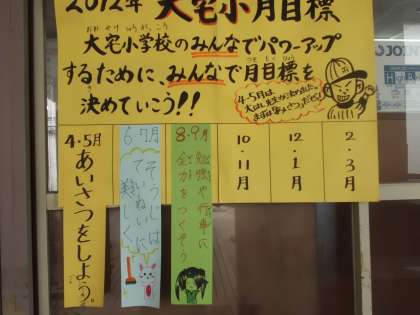 2012年 大宅小月目標
大宅小学校のみんなでパワーアップ
するために、みんなで月目標を
決めていこう!!
4・5月は
まずは「あいさつ」だぞ!
4・5月
あいさつをしよう
6・7月
そうじは
ていねいに
楽しく
8・9月
勉強や行事に
全力をつくそう
10・11月
12・1月
2・3月